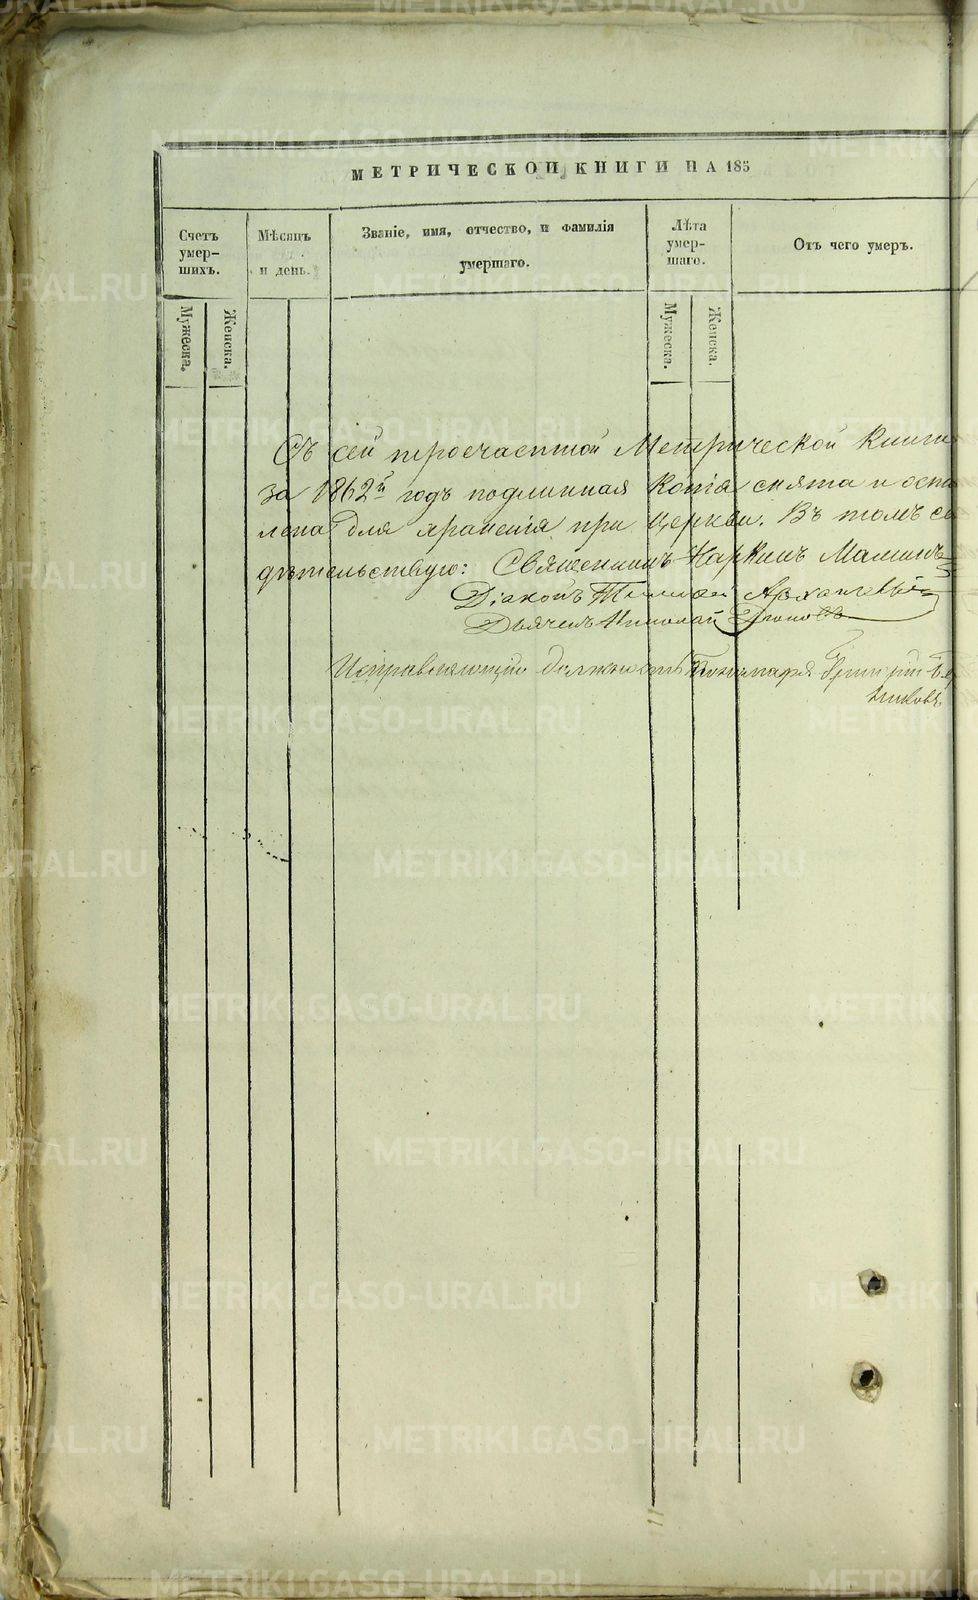 МЕТРИЧЕСКОЙ КНИГИ НА 185
Счетъ умер-
шихъ.
Мѣсяцъ
и день.
Званіе, имя, отчество, и фамилія
умершаго.
Лѣта
умер-
шаго.
Отъ чего умеръ.
Мужеска.
Женска.
Мужеска.
Женска.
Съ сей троечастной Метрической Книги
за 1862й годъ подлинная Копія снята и оста
лена для храненія при Церкви. Въ томъ сви
дѣтельствую: Священникъ Наркисъ Маминъ
Діаконъ
Дьячекъ Николай
Исправляющій должность Пономаря Григорій
никовъ
METRIKI.GASO-URAL.RU